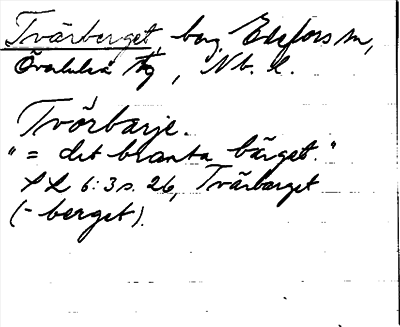 Tvärberget, berg, Edefors sn,
Överluleå tg, Nb. l.
Tvörbarje.
"= det branta bärget."
SL 6:3 s. 26, Tvärbärget
(-berget).